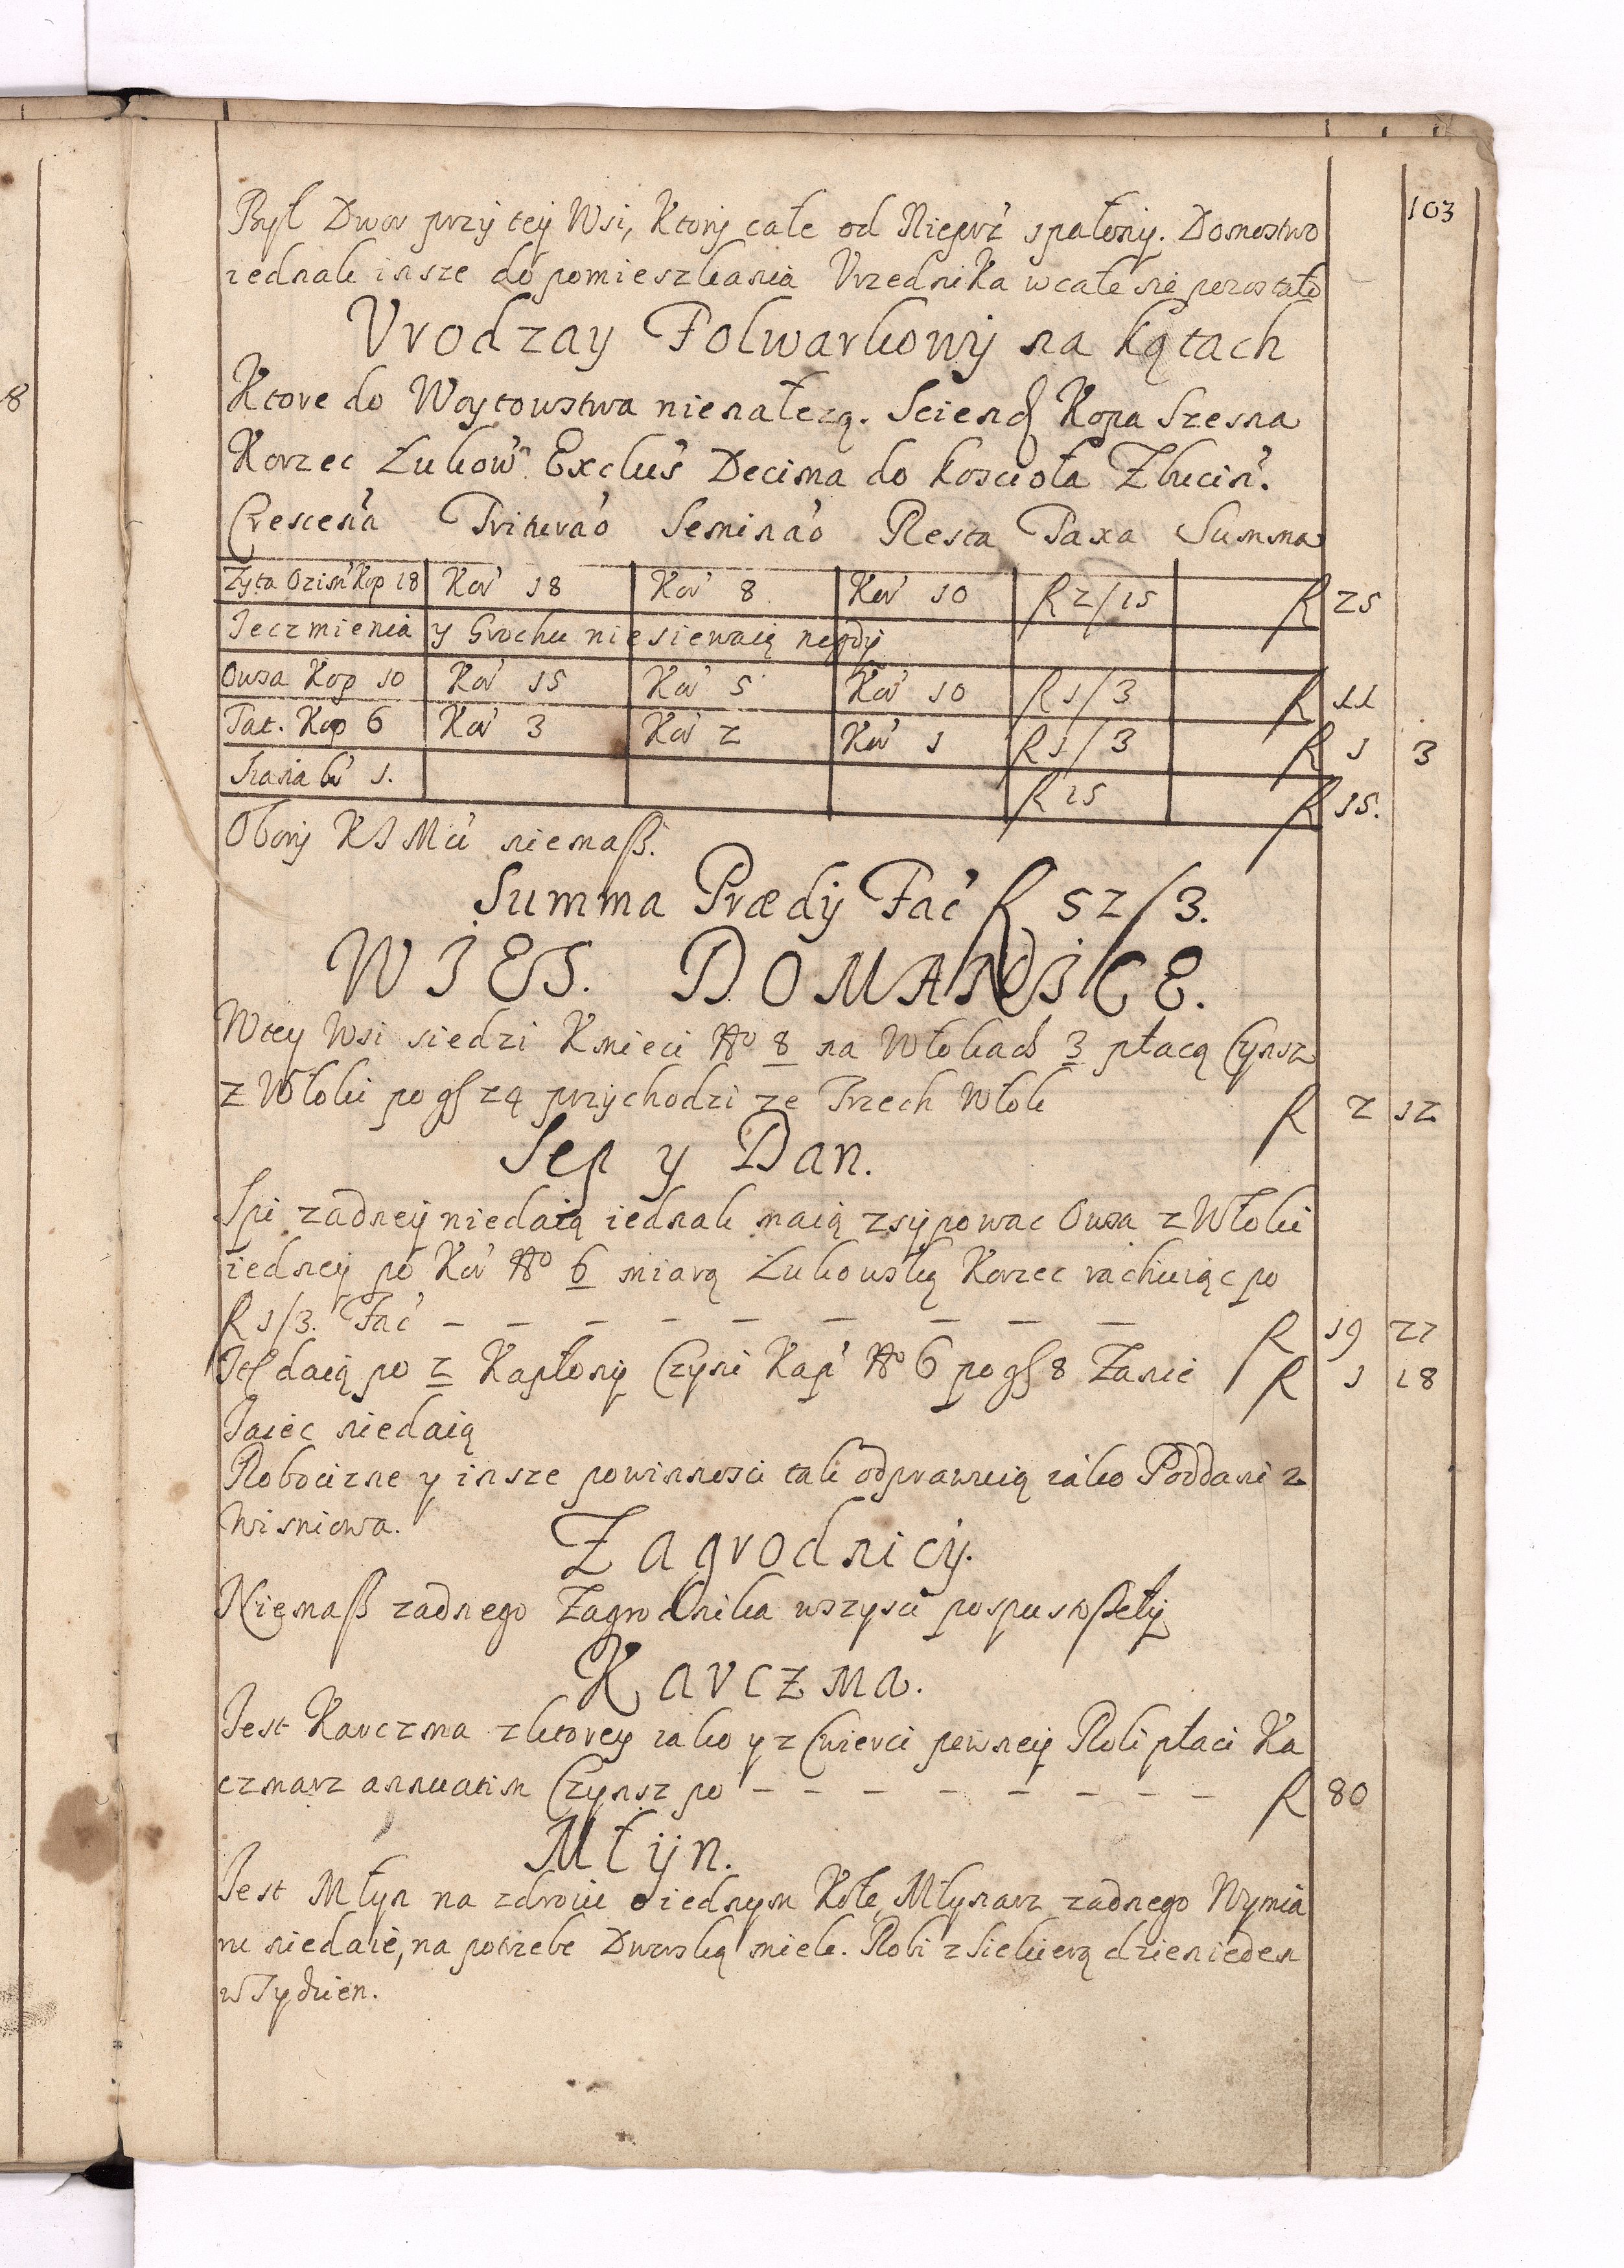 103
Był Dwor przy tey Wsi, Ktory cale od Nieprz' spalony. Domostwo
iednak insze do pomieszkania Vrzednika wcale sie pozostało
Vrodzay Folwarkowy na kątach
Ktore do Woytowstwa nienależą. Kopa Szesna
Korzec Lukow Exclus Decima do kosciola Zbucin'.
Crescen'a Triturao Seminao Resta Taxa Summa
Zyta Ozim' Kop 18 Kor' 18 Kor' 8 Kor' 10 R 2/15 R 25
Jeczmienia y Grochu niesiewaią nigdy
Owsa Kop 10 Kor' 15 Kor' 5 Kor' 10 R 1/3 R 11
Tat. Kop 6 Kor' 3 Kor' 2 Kor' 1 R 1/3 R 1 3
Siana 1. R 15 R 15.
Obory KJMci niemaß.
Summa Prædij Fac' R 52/3.
WIES. DOMANICE.
Wtey Wsi siedzi Kmieci No 8 na Włokach 3 płacą Czynsz
z Włoki po gs 24 przychodzi ze Trzech Włok R 2 12
Sep y Dan.
Spi zadney niedaią iednak maią zsypowac Owsa z Włoki
iedney po Kor' No 6 miarą Lukowską Korzec rachuiąc po
R 1/3. Fac' – – – – – – – – – R 19 24
Jt daią po 2 Kapłony Czyni Kap' No 6 po gs 8 Zanie R 1 18
Jaiec niedaią
Robocizne y insze powinnosci tak odprawuią iako Poddani z
Wisniowa.
Zagrodnicy.
Niemaß zadnego Zagrodnika wszysci pospustoßeły
Karczma.
Jest Karczma zktorey iako y z Cwierci pewney Roli płaci Ka
czmarz annuatim Czynsz po – – – – – – – R 80
Młyn.
Jest Młyn na zdroiu o iednym Kole, Młynarz zadnego Wymia
ru niedaie, na potrzebe Dworską miele. Robi z Siekierą dzien ieden
w Tydzien.
8